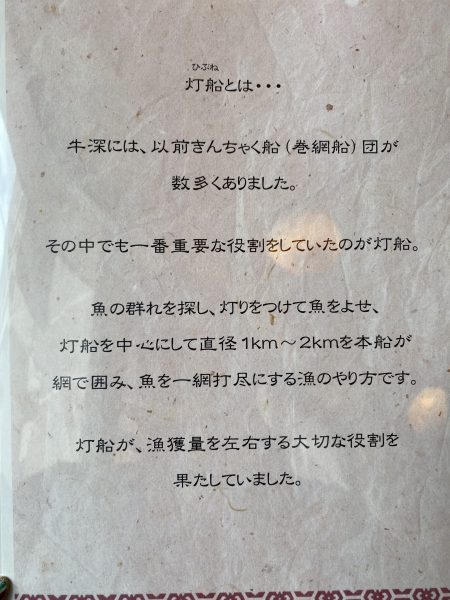 ひぶね
灯船とは・・・
牛深には、以前きんちゃく船（巻網船）団が
数多くありました。
その中でも一番重要な役割をしていたのが灯船。
魚の群れを探し、灯りをつけて魚をよせ、
灯船を中心にして直径1km～2kmを本船が
網で囲み、魚を一網打尽にする漁のやり方です。
灯船が、漁獲量を左右する大切な役割を
果たしていました。